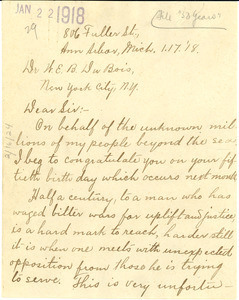 JAN 22 1918
File "50 Years"
29
806 Fuller St.,
Ann Arbor, Mich. 1.17.'18.
Dr. W. E. B. Du Bois,
New York City, N.Y.
Dear Sir:-
On behalf of the unknown mil-
lions of my people beyond the seas
I beg to congratulate you on your fif-
tieth birth day which occurs next month.
Half a century, to a man who has
waged bitter wars for uplift and justice,
is a hard mark to reach, harder still
it is when one meets with unexpected
opposition from those he is trying
to serve. This is very unfortu-